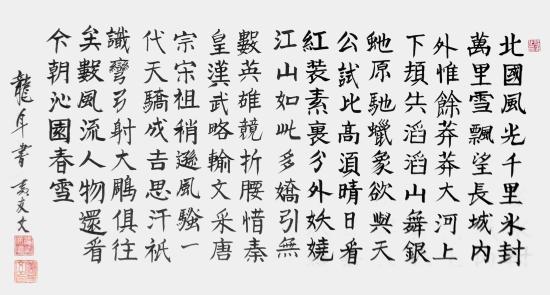 北國風光千里氷封
萬里雪飄望長城内
外惟餘莽莽大河上
下頓失滔滔山舞銀
虵原馳蠟象欲與天
公試比髙須晴日看
紅裝素裹分外妖嬈
江山如此多嬌引無
數英雄競折腰惜秦
皇漢武略輸文采唐
宗宋祖稍遜風騷一
代天驕成吉思汗祇
識彎弓射大鵰俱往
矣數風流人物還看
今朝沁園春雪
龍年書